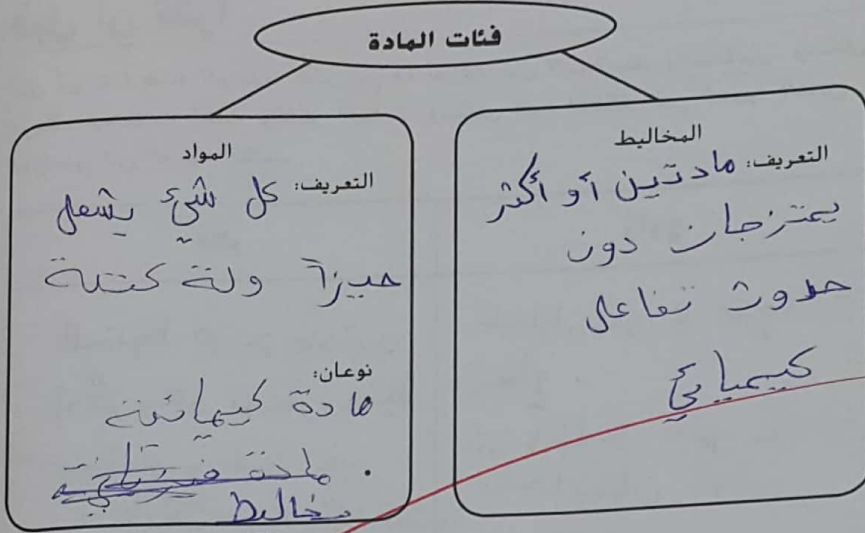 فئات المادة
المخاليط
التعريف: مادتين أو أكثر
يمتزجان دون
حدوث تفاعل
كيميائي
المواد
التعريف: كل شئ يشغل
حيزاً ولة كتلة
نوعان:
مادة كيميائية
مادة فيزيائية
مخاليط